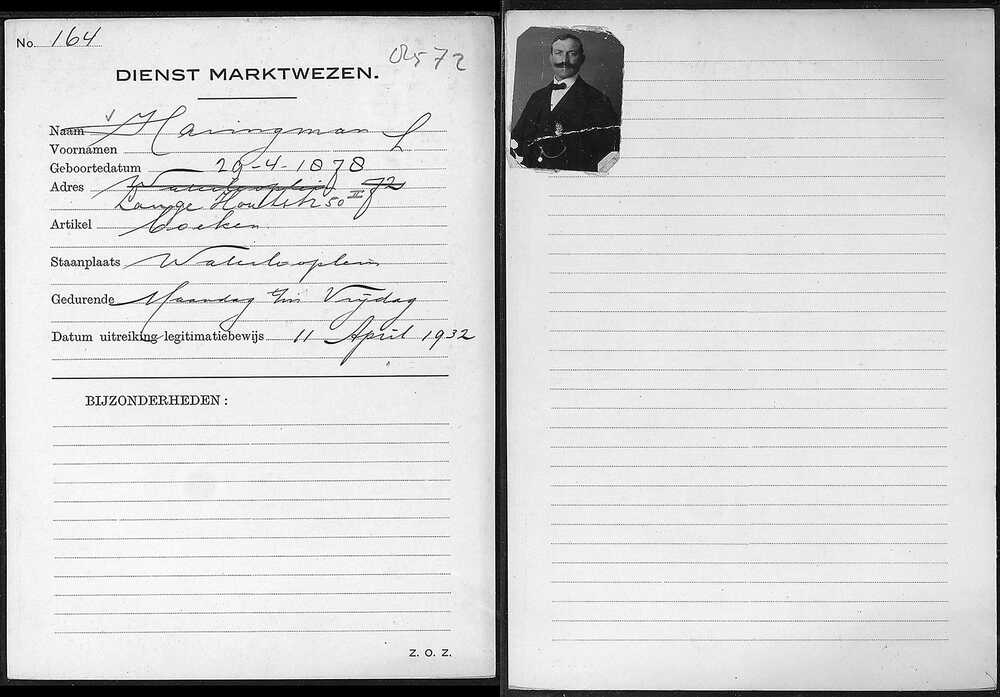 No. 164
02572
DIENST MARKTWEZEN.
Naam Haringman L
Voornamen
Geboortedatum 29-4-1878
Adres Waterlooplein 72
Lange Houtstr 50 II
Artikel boeken
Staanplaats Waterlooplein
Gedurende Maandag t/m Vrijdag
Datum uitreiking legitimatiebewijs 11 April 1932
BIJZONDERHEDEN :
Z. O. Z.